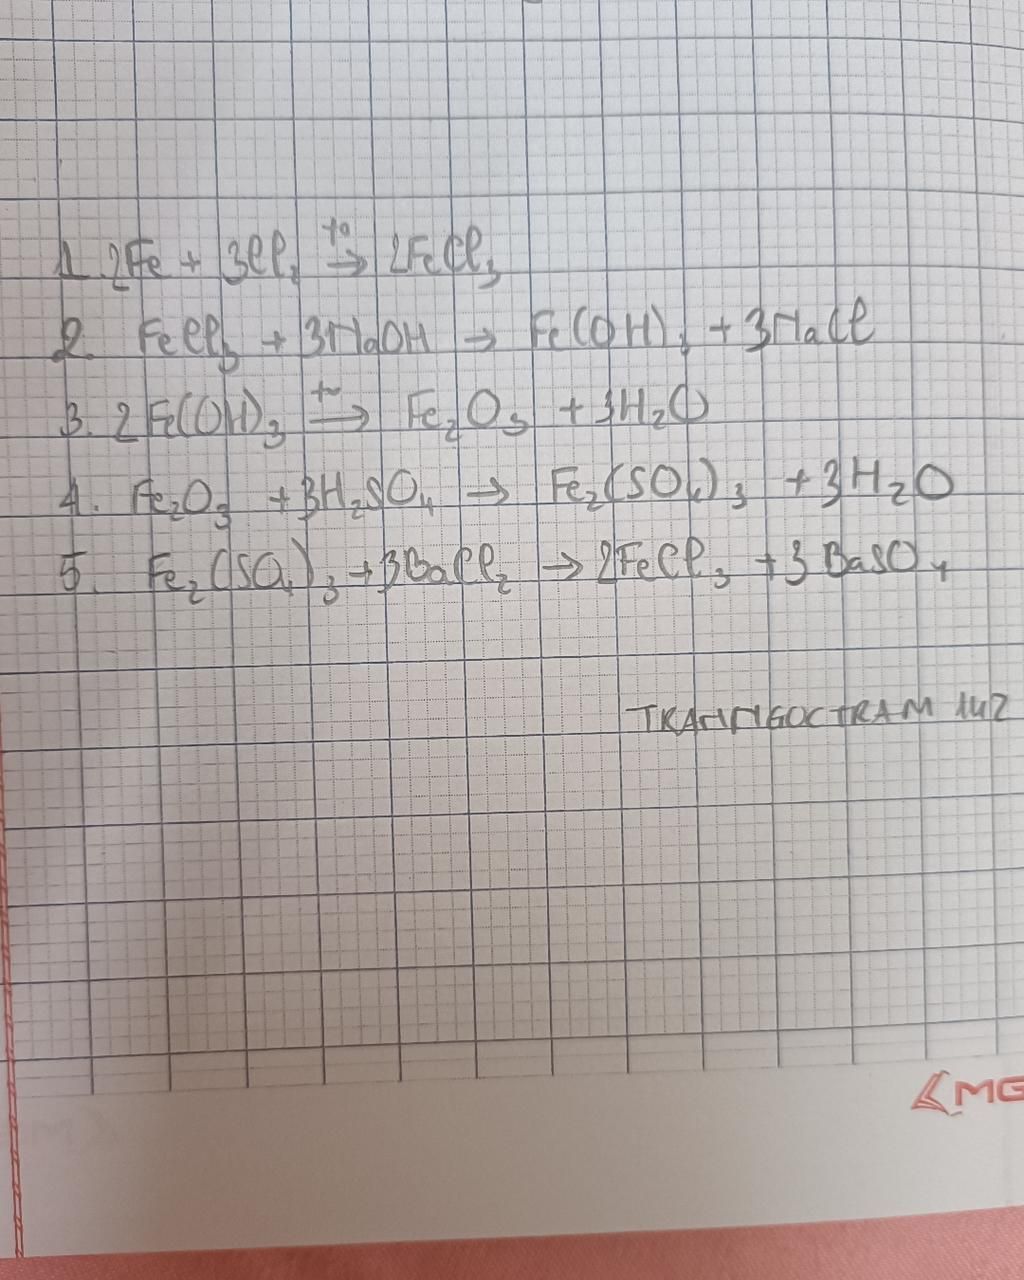 1. 2Fe + 3Cl₂ →(t°) 2FeCl₃
2. FeCl₃ + 3NaOH → Fe(OH)₃ + 3NaCl
3. 2Fe(OH)₃ →(t°) Fe₂O₃ + 3H₂O
4. Fe₂O₃ + 3H₂SO₄ → Fe₂(SO₄)₃ + 3H₂O
5. Fe₂(SO₄)₃ + 3BaCl₂ → 2FeCl₃ + 3BaSO₄
TRANNGOCTRAM 142
MG